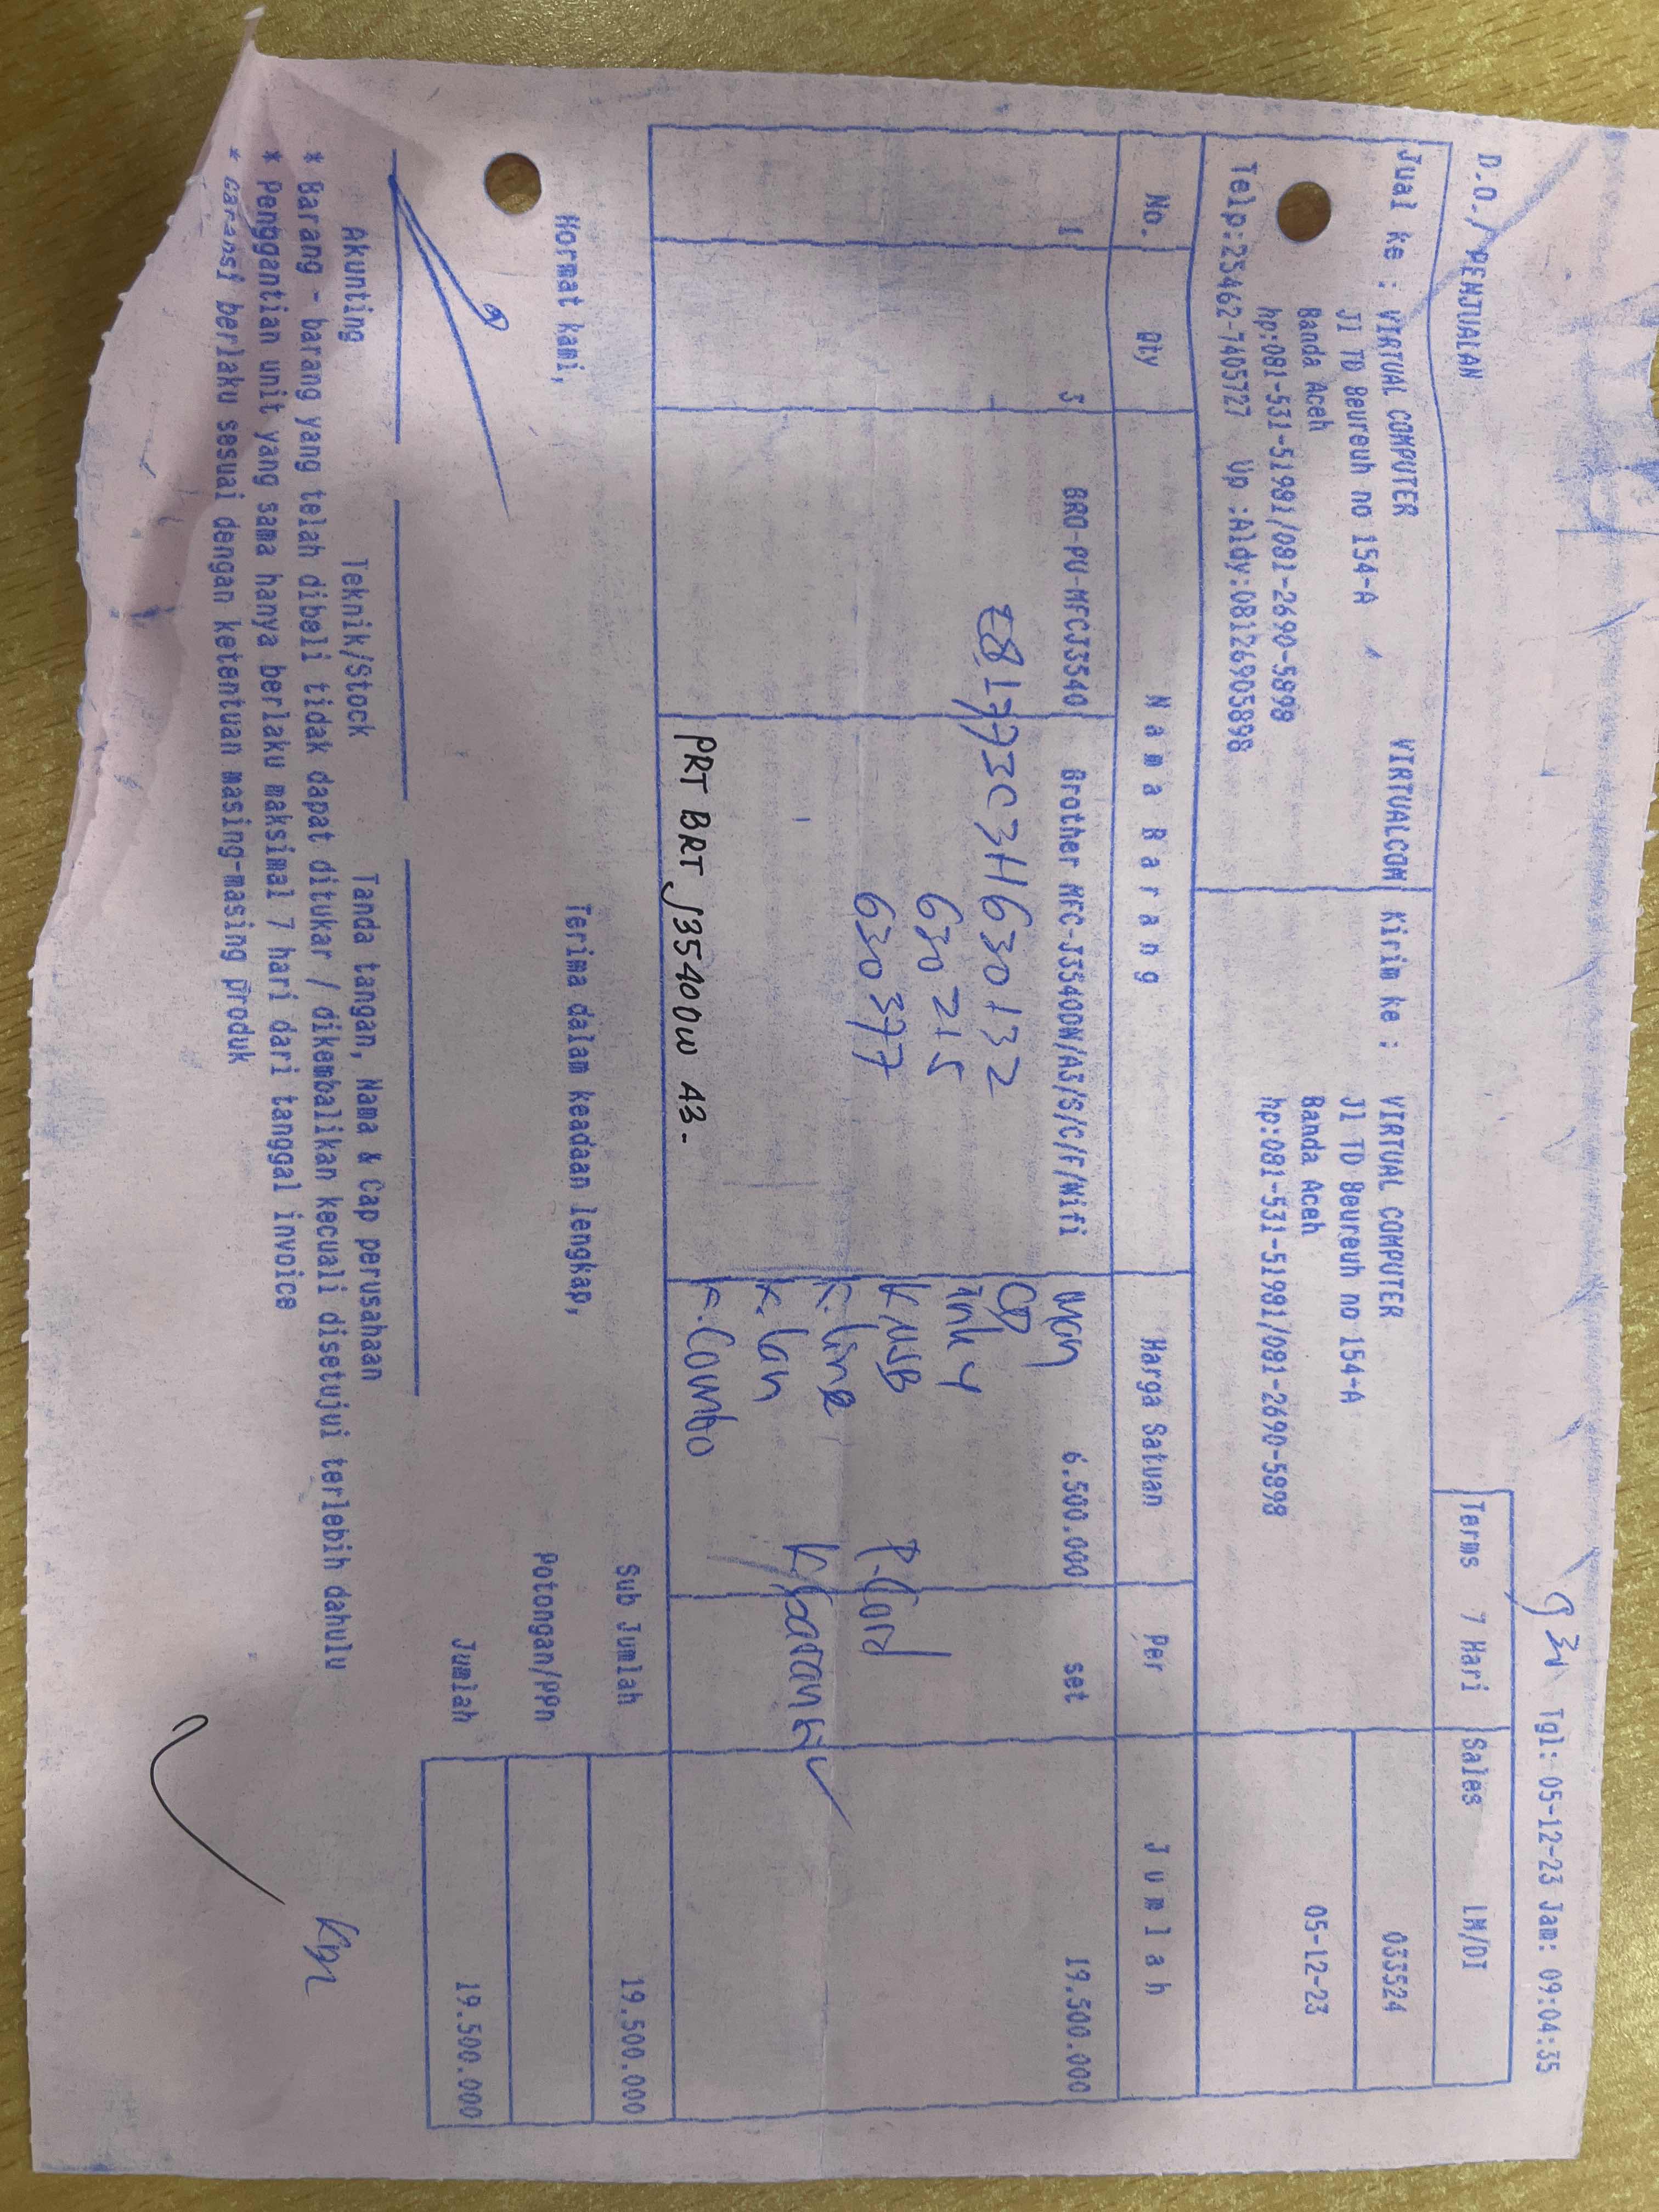 Tgl: 05-12-23 Jam: 09:04:35
D.O./PENJUALAN
Terms 7 Hari Sales LM/DI
Jual ke : VIRTUAL COMPUTER VIRTUALCOM Kirim ke : VIRTUAL COMPUTER 033524
Jl TD Beureuh no 154-A Jl TD Beureuh no 154-A
Banda Aceh Banda Aceh 05-12-23
hp:081-531-51981/081-2690-5898 hp:081-531-51981/081-2690-5898
Telp:25462-7405727 Up :Aldy:08126905898
No. Qty Nama Barang Harga Satuan Per Jumlah
1 3 BRO-PU-MFCJ3540 Brother MFC-J3540DW/A3/S/C/F/Wifi 6.500.000 set 19.500.000
Man
E81773C3H630132 CD
630215 Ink 4
630377 K.USB P.Cord
K.line K.Garansi
K.Lan
PRT BRT J3540DW A3- K.Combo
Sub Jumlah 19.500.000
Hormat kami, Terima dalam keadaan lengkap, Potongan/PPn
Jumlah 19.500.000
Akunting Teknik/Stock Tanda tangan, Nama & Cap perusahaan
* Barang - barang yang telah dibeli tidak dapat ditukar / dikembalikan kecuali disetujui terlebih dahulu
* Penggantian unit yang sama hanya berlaku maksimal 7 hari dari tanggal invoice
* Garansi berlaku sesuai dengan ketentuan masing-masing produk